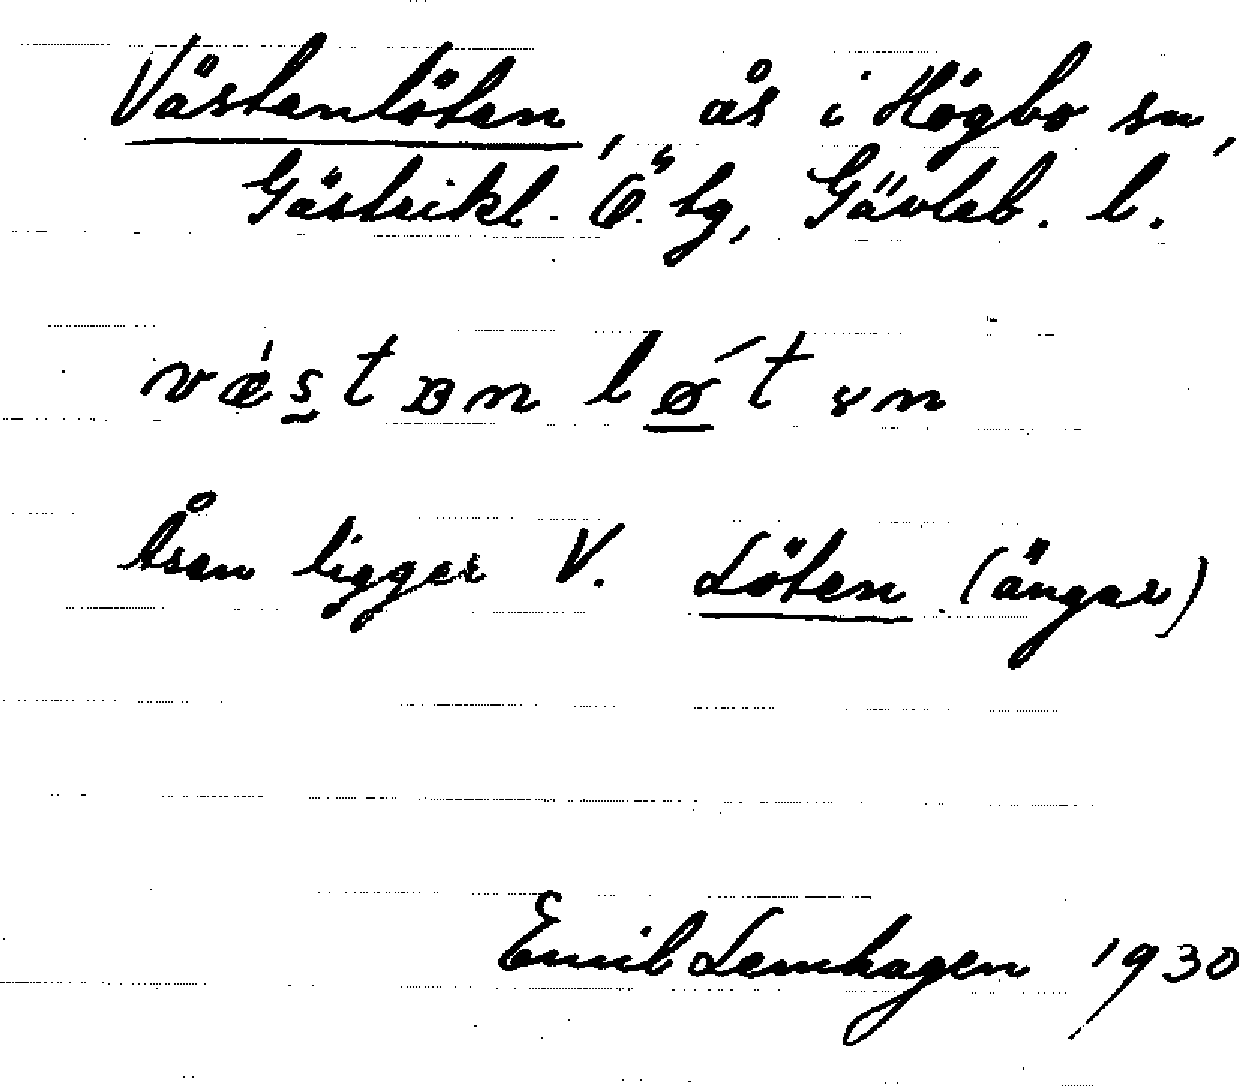 Västenlöten, ås i Högbo sn,
Gästrikl. Ö. tg, Gävleb. l.
Åsen ligger V. Löten (ängar)
Emil Lemhagen 1930